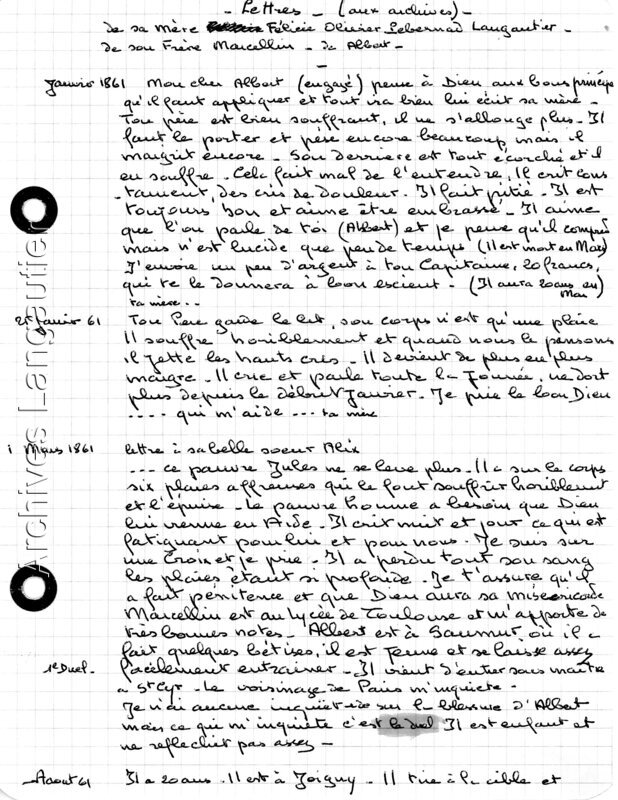 - Lettres - (aux archives) -
de sa mère Félicie Olivier Pebernad Langautier -
de son Frère Marcellin - de Albert -
Janvier 1861 Mon cher Albert (engagé) pense à Dieu aux bons principes
qu'il faut appliquer et tout ira bien lui écrit sa mère -
Ton père est bien souffrant, il ne s'allonge plus - Il
faut le porter et pèse encore beaucoup mais il
maigrit encore - Son derriere est tout écorché et il
en souffre - Cela fait mal de l'entendre, Il crit cons
tament, des cris de douleur - Il fait pitié - Il est
toujours bon et aime être embrassé - Il aime
que l'on parle de toi (Albert) et je pense qu'il comprend
mais n'est lucide que peu de temps (il est mort en Mars)
J'envoie un peu d'argent à ton Capitaine, 20 francs,
qui te le donnera à bon escient - (Il aura 20 ans en
Mai)
ta mère...
25 Janvier 61 Ton Pere garde le lit, son corps n'est qu'une plaie
Il souffre horiblement et quand nous le pensons
il jette les hauts cris - Il devient de plus en plus
maigre - Il crie et parle toute la Journée, ne dort
plus depuis le début Janvier - Je prie le bon Dieu
.... qui m'aide ... ta mère
1 Mars 1861 lettre à sa belle soeur Alix
... ce pauvre Jules ne se leve plus - Il a sur le corps
six plaies affreuses qui le font souffrir horiblement
et l'épuise - Le pauvre homme a besoin que Dieu
lui vienne en Aide - Il crit nuit et jour ce qui est
fatiguant pour lui et pour nous - Je suis sur
une Croix et je prie - Il a perdu tout son sang
les plaies étant si profonde - Je t'assure qu'il
a fait pénitence et que Dieu aura sa miséricorde
Marcellin est au lycée de Toulouse et m'apporte de
très bonnes notes - Albert est à Saumur, où il a
fait quelques bêtises, il est jeune et se laisse assez
1e Duel - facilement entrainer - Il vient d'entrer sans maitre
a St Cyr - Le voisinage de Paris m'inquiete -
Je n'ai aucune inquietude sur la blessure d'Albert
mais ce qui m'inquiete c'est le duel Il est enfant et
ne reflechit pas assez -
Aout 61 Il a 20 ans - Il est à Joigny - Il tire à la cible et
Archives Langautier